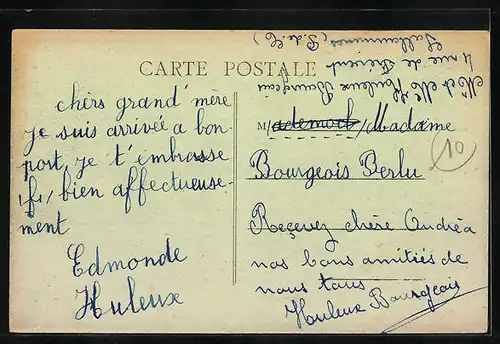 CARTE POSTALE
chèrs grand' mère
je suis arrivée a bon-
port, je t'embrasse
bien affectueuse-
ment
Edmonde
Huleux
M
Madame
Bourgeois Berlu
10
Reçevez chère Andréa
nos bons amitiés de
nous tous
Houleux Bourgeois
Mr et Mme Houleux Bourgeois
4 rue de
(P. de C)